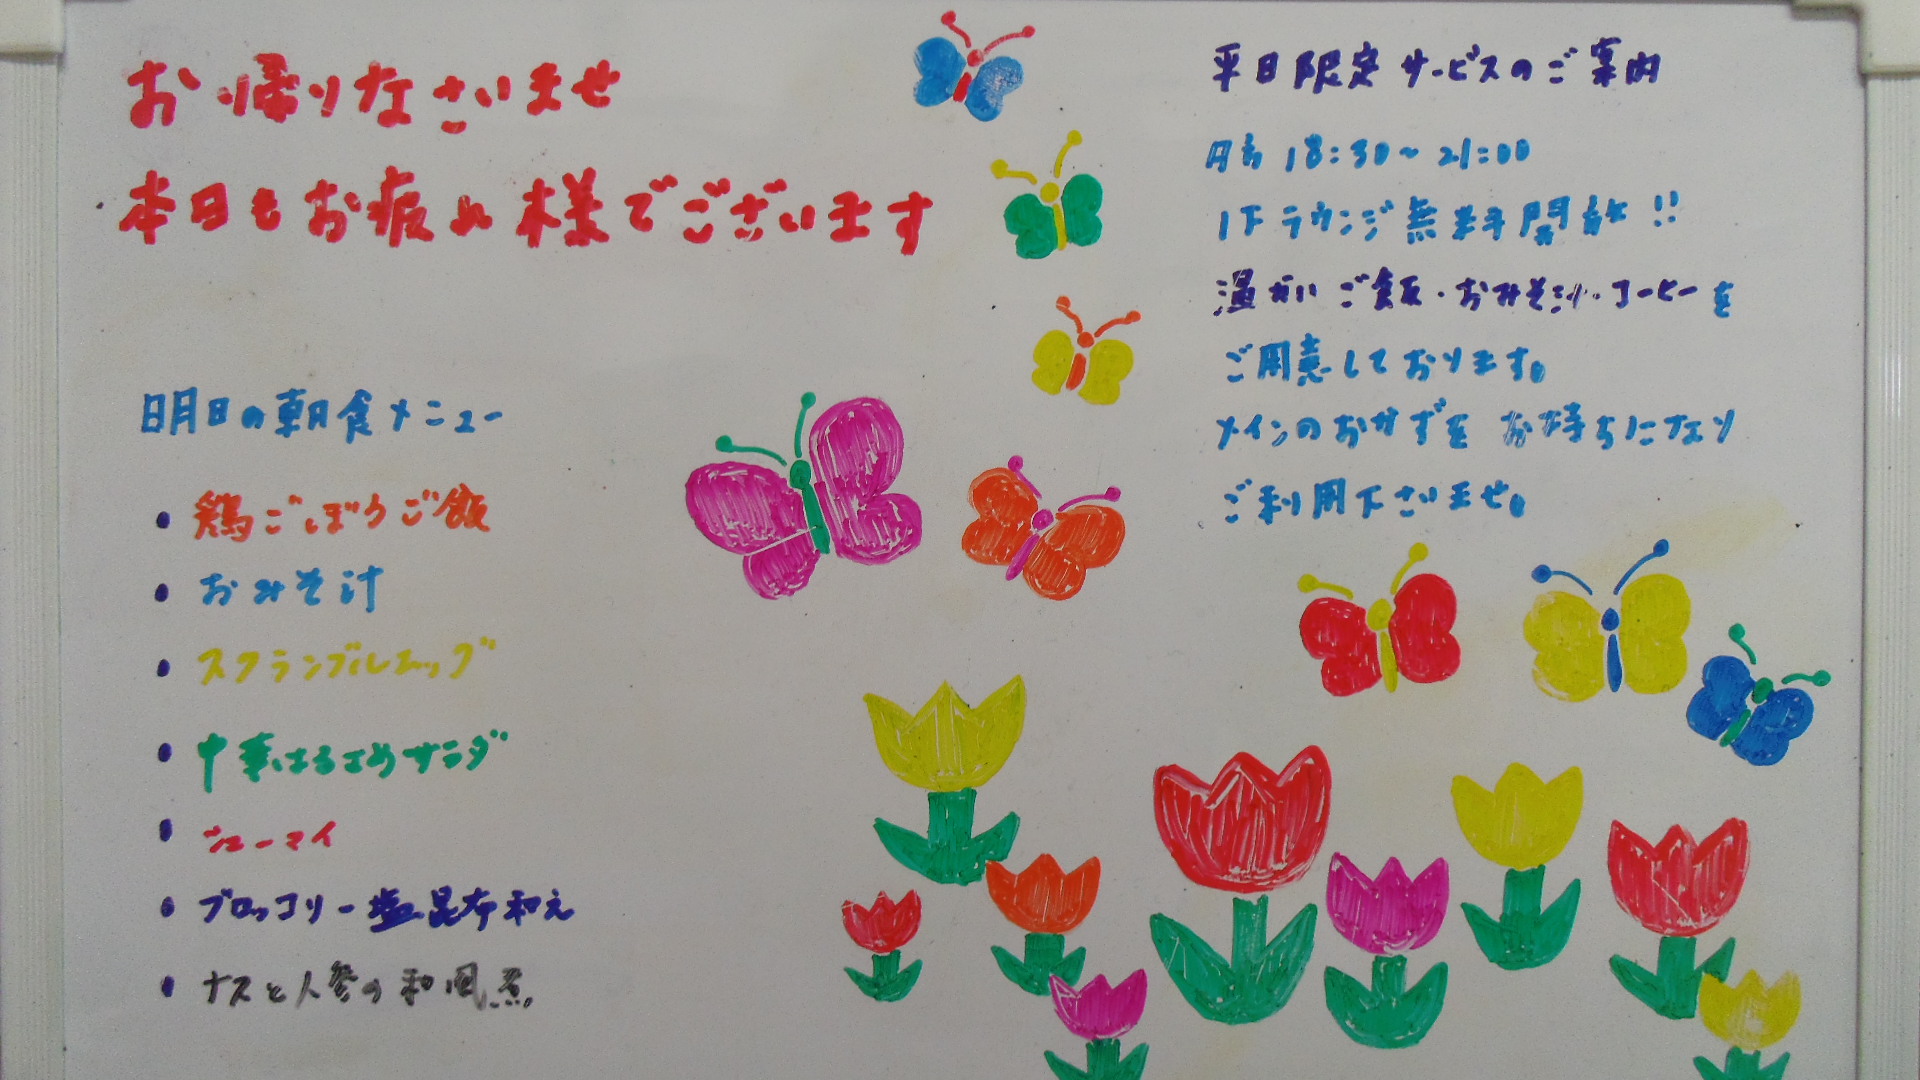 お帰りなさいませ
本日もお疲れ様でございます
明日の朝食メニュー
・鶏ごぼうご飯
・おみそ汁
・スクランブルエッグ
・中華はるさめサラダ
・シューマイ
・ブロッコリー塩昆布和え
・ナスと人参の和風煮
平日限定サービスのご案内
18:30~21:00
1Fラウンジ無料開放!!
温かいご飯・おみそ汁・コーヒーを
ご用意しております。
メインのおかずをお持ちになり
ご利用下さいませ。